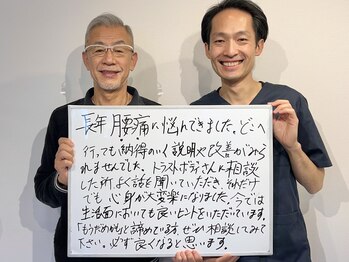 長年 腰痛に悩んできました。どこへ
行っても納得のいく説明や改善がみら
れませんでした。トラストボディさんに相談
した所、よく話を聞いていただき、それだけ
でも心身が大変楽になりました。今では
生活面においても良いヒントをいただいています。
「もうだめだ」と諦めている方、ぜひ相談してみて
下さい。必ず良くなると思います。